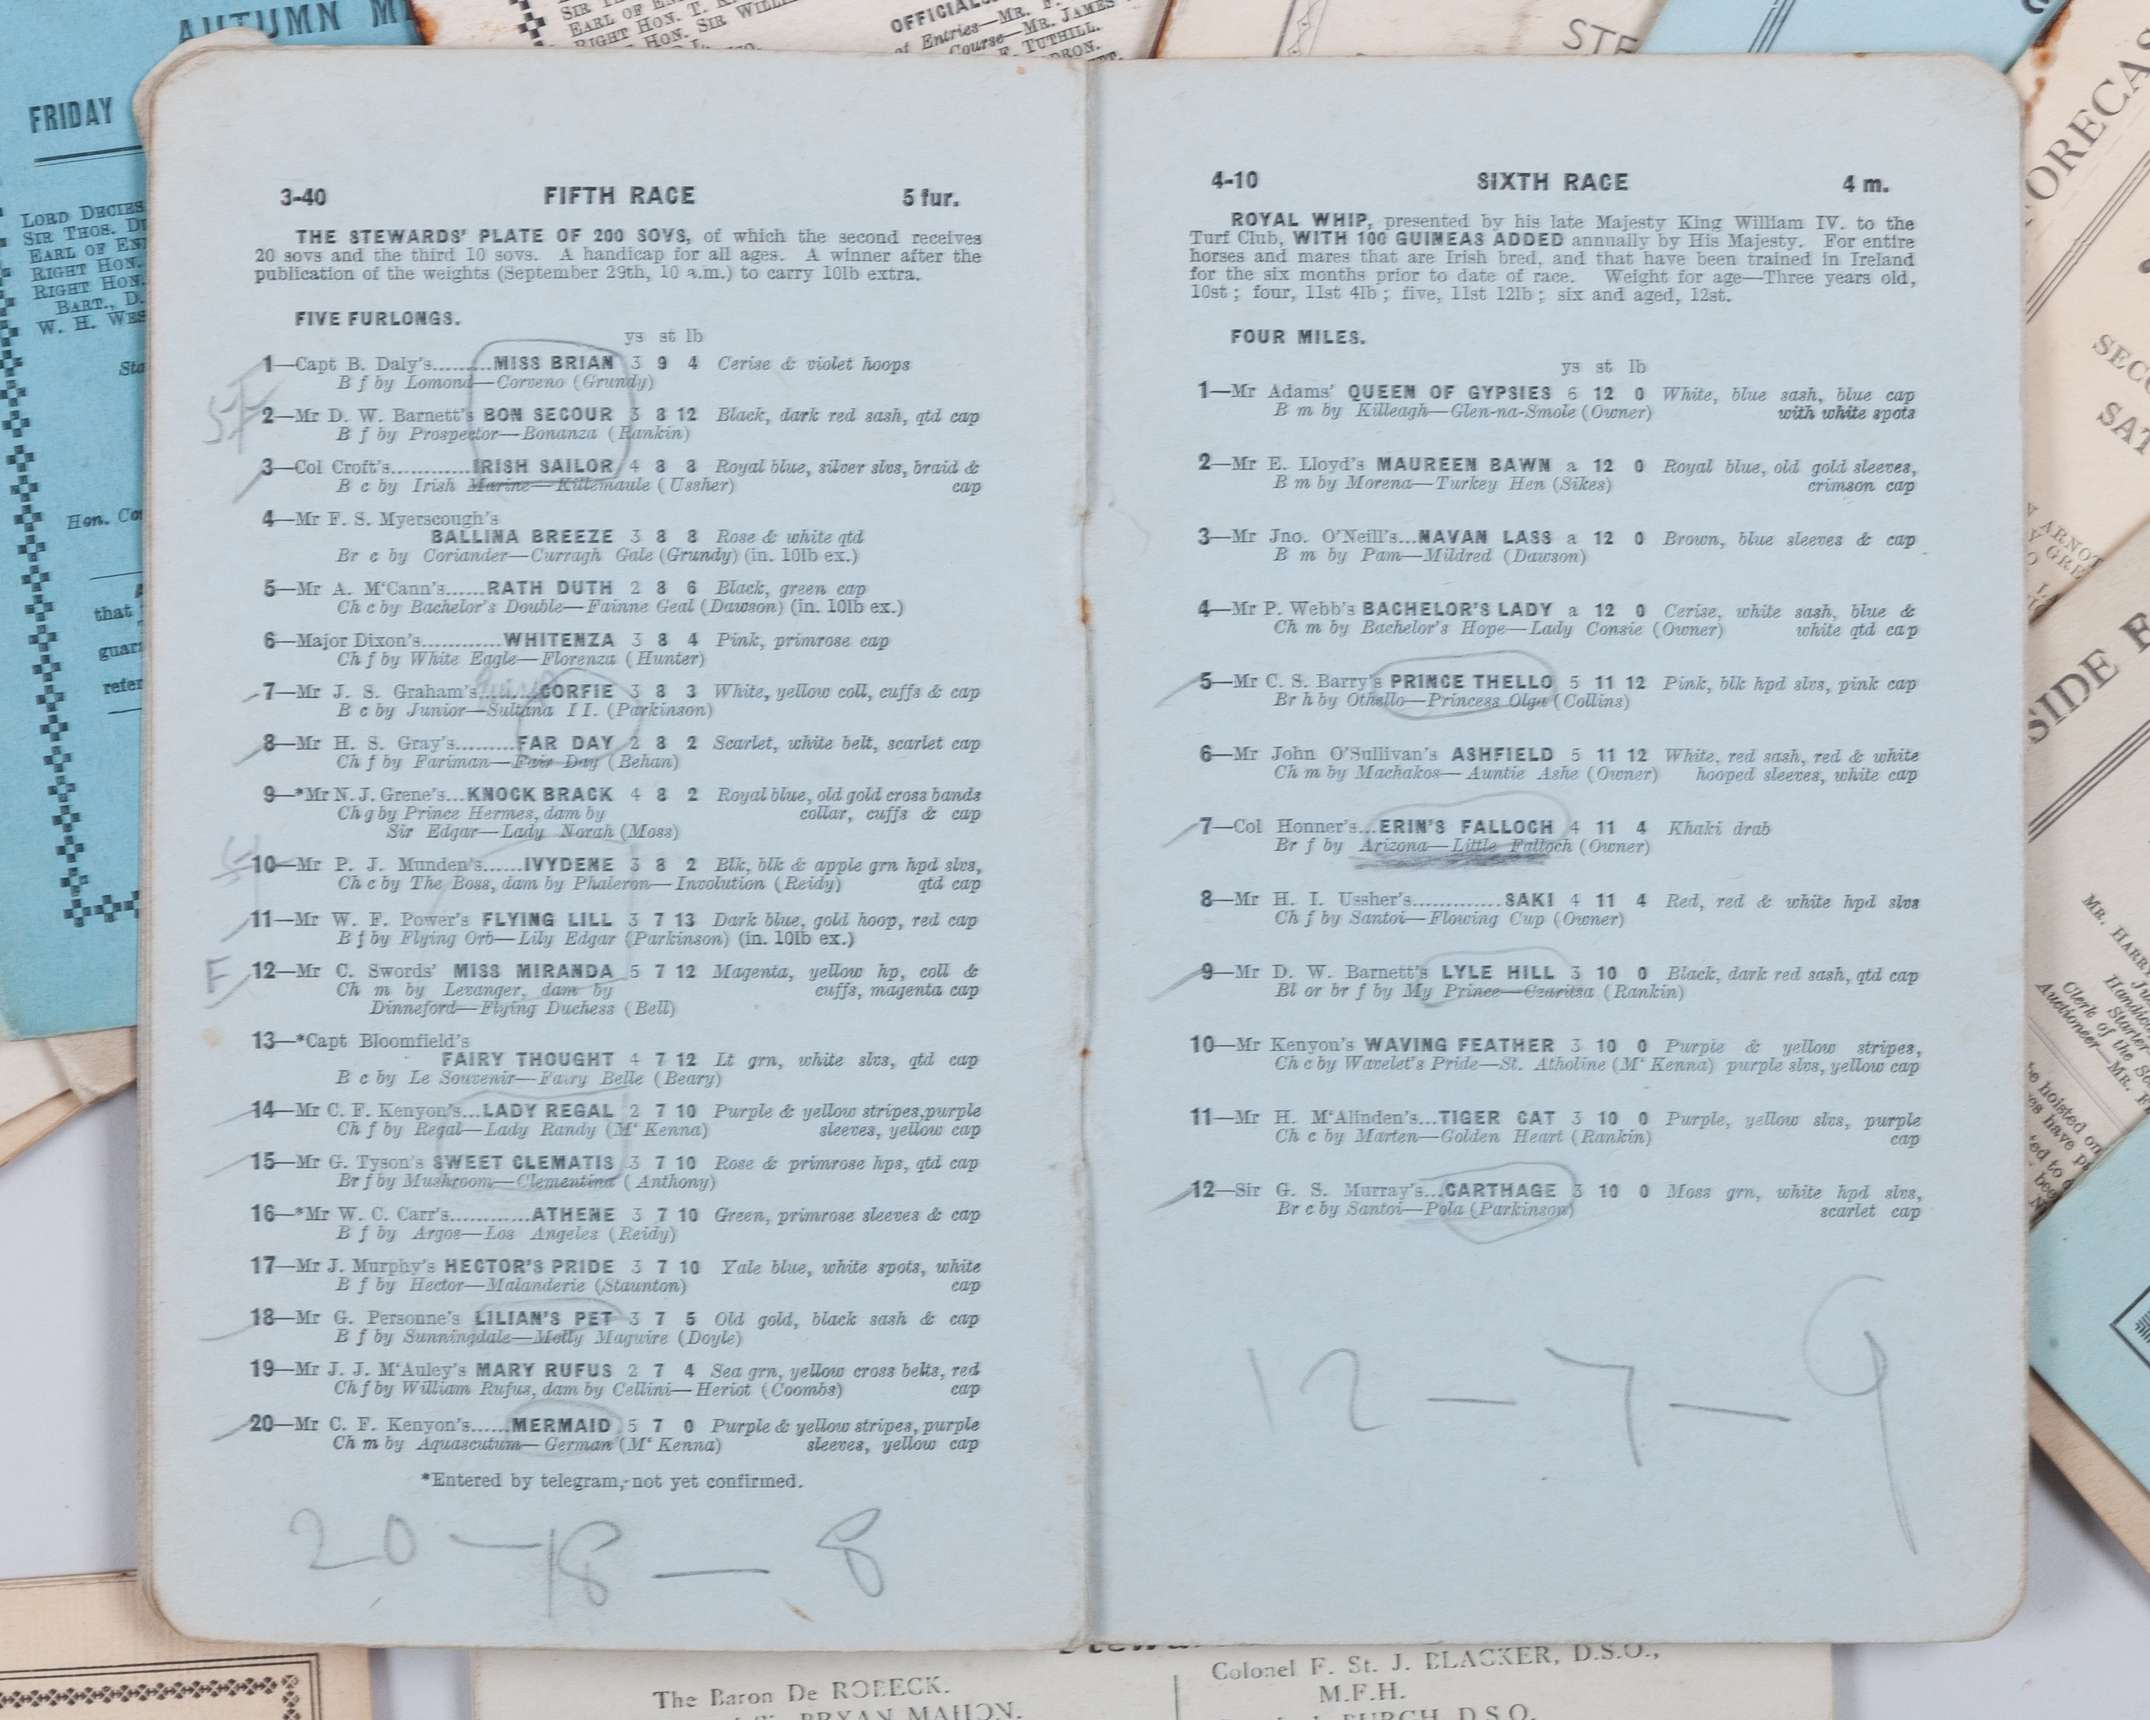 AUTUMN
FRIDAY
LORD DECIES
SIR THOS.
EARL OF
RIGHT HON.
RIGHT HON.
BART., D.
W. H. WES
Hon.
that
EARL OF
RIGHT HON. T.
HON. SIR
OFFICIALS
of Entries—MR. F.
Course—MR. JAMES
F. TUTHILL.
3-40 FIFTH RACE 5 fur.
THE STEWARDS' PLATE OF 200 SOVS, of which the second receives
20 sovs and the third 10 sovs. A handicap for all ages. A winner after the
publication of the weights (September 29th, 10 a.m.) to carry 10lb extra.
FIVE FURLONGS.
ys st lb
1—Capt B. Daly's.........MISS BRIAN 3 9 4 Cerise & violet hoops
B f by Lomond—Corveno (Grundy)
SF
2—Mr D. W. Barnett's BON SECOUR 3 8 12 Black, dark red sash, qtd cap
B f by Prospector—Bonanza (Rankin)
3—Col Croft's............IRISH SAILOR 4 8 8 Royal blue, silver slvs, braid &
B c by Irish Marine—Killemaule (Ussher) cap
4—Mr F. S. Myerscough's
BALLINA BREEZE 3 8 8 Rose & white qtd
Br c by Coriander—Curragh Gale (Grundy) (in. 10lb ex.)
5—Mr A. M'Cann's......RATH DUTH 2 8 6 Black, green cap
Ch c by Bachelor's Double—Fainne Geal (Dawson) (in. 10lb ex.)
6—Major Dixon's............WHITENZA 3 8 4 Pink, primrose cap
Ch f by White Eagle—Florenza (Hunter)
7—Mr J. S. Graham's.........CORFIE 3 8 3 White, yellow coll, cuffs & cap
B c by Junior—Sultana II. (Parkinson)
8—Mr H. S. Gray's.........FAR DAY 2 8 2 Scarlet, white belt, scarlet cap
Ch f by Fariman—Fair Day (Behan)
9—*Mr N. J. Grene's...KNOCK BRACK 4 8 2 Royal blue, old gold cross bands
Ch g by Prince Hermes, dam by collar, cuffs & cap
Sir Edgar—Lady Norah (Moss)
10—Mr P. J. Munden's......IVYDENE 3 8 2 Blk, blk & apple grn hpd slvs,
Ch c by The Boss, dam by Phaleron—Involution (Reidy) qtd cap
11—Mr W. F. Power's FLYING LILL 3 7 13 Dark blue, gold hoop, red cap
B f by Flying Orb—Lily Edgar (Parkinson) (in. 10lb ex.)
F
12—Mr C. Swords' MISS MIRANDA 5 7 12 Magenta, yellow hp, coll &
Ch m by Levanger, dam by cuffs, magenta cap
Dinneford—Flying Duchess (Bell)
13—*Capt Bloomfield's
FAIRY THOUGHT 4 7 12 Lt grn, white slvs, qtd cap
B c by Le Souvenir—Fairy Belle (Beary)
14—Mr C. F. Kenyon's...LADY REGAL 2 7 10 Purple & yellow stripes, purple
Ch f by Regal—Lady Randy (M'Kenna) sleeves, yellow cap
15—Mr G. Tyson's SWEET CLEMATIS 3 7 10 Rose & primrose hps, qtd cap
Br f by Mushroom—Clementina (Anthony)
16—*Mr W. C. Carr's............ATHENE 3 7 10 Green, primrose sleeves & cap
B f by Argos—Los Angeles (Reidy)
17—Mr J. Murphy's HECTOR'S PRIDE 3 7 10 Yale blue, white spots, white
B f by Hector—Malanderie (Staunton) cap
18—Mr G. Personne's LILIAN'S PET 3 7 5 Old gold, black sash & cap
B f by Sunningdale—Molly Maguire (Doyle)
19—Mr J. J. M'Auley's MARY RUFUS 2 7 4 Sea grn, yellow cross belts, red
Ch f by William Rufus, dam by Cellini—Heriot (Coombs) cap
20—Mr C. F. Kenyon's......MERMAID 5 7 0 Purple & yellow stripes, purple
Ch m by Aquascutum—German (M'Kenna) sleeves, yellow cap
*Entered by telegram, not yet confirmed.
20—18—8
4-10 SIXTH RACE 4 m.
ROYAL WHIP, presented by his late Majesty King William IV. to the
Turf Club, WITH 100 GUINEAS ADDED annually by His Majesty. For entire
horses and mares that are Irish bred, and that have been trained in Ireland
for the six months prior to date of race. Weight for age—Three years old,
10st; four, 11st 4lb; five, 11st 12lb; six and aged, 12st.
FOUR MILES.
ys st lb
1—Mr Adams' QUEEN OF GYPSIES 6 12 0 White, blue sash, blue cap
B m by Killeagh—Glen-na-Smole (Owner) with white spots
2—Mr E. Lloyd's MAUREEN BAWN a 12 0 Royal blue, old gold sleeves,
B m by Morena—Turkey Hen (Sikes) crimson cap
3—Mr Jno. O'Neill's...NAVAN LASS a 12 0 Brown, blue sleeves & cap
B m by Pam—Mildred (Dawson)
4—Mr P. Webb's BACHELOR'S LADY a 12 0 Cerise, white sash, blue &
Ch m by Bachelor's Hope—Lady Consie (Owner) white qtd cap
5—Mr C. S. Barry's PRINCE THELLO 5 11 12 Pink, blk hpd slvs, pink cap
Br h by Othello—Princess Olga (Collins)
6—Mr John O'Sullivan's ASHFIELD 5 11 12 White, red sash, red & white
Ch m by Machakos—Auntie Ashe (Owner) hooped sleeves, white cap
7—Col Honner's...ERIN'S FALLOCH 4 11 4 Khaki drab
Br f by Arizona—Little Falloch (Owner)
8—Mr H. I. Ussher's.............SAKI 4 11 4 Red, red & white hpd slvs
Ch f by Santoi—Flowing Cup (Owner)
9—Mr D. W. Barnett's LYLE HILL 3 10 0 Black, dark red sash, qtd cap
Bl or br f by My Prince—Czaritsa (Rankin)
10—Mr Kenyon's WAVING FEATHER 3 10 0 Purple & yellow stripes,
Ch c by Wavelet's Pride—St. Atholine (M'Kenna) purple slvs, yellow cap
11—Mr H. M'Alinden's...TIGER CAT 3 10 0 Purple, yellow slvs, purple
Ch c by Marten—Golden Heart (Rankin) cap
12—Sir G. S. Murray's...CARTHAGE 3 10 0 Moss grn, white hpd slvs,
Br c by Santoi—Pola (Parkinson) scarlet cap
12—7—9
SIDE
MR. HARRY
Clerk of the
Auctioneer—MR.
be hoisted on
The Baron De ROBECK.
BRYAN MAHON.
Colonel F. St. J. BLACKER, D.S.O.,
M.F.H.
BURCH, D.S.O.